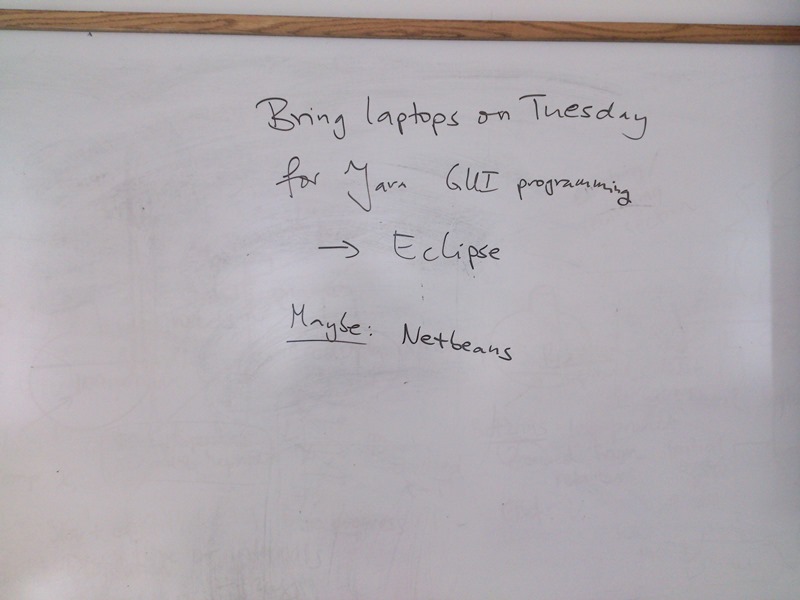 Bring laptops on Tuesday
for Java GUI programming
→ Eclipse
Maybe: Netbeans